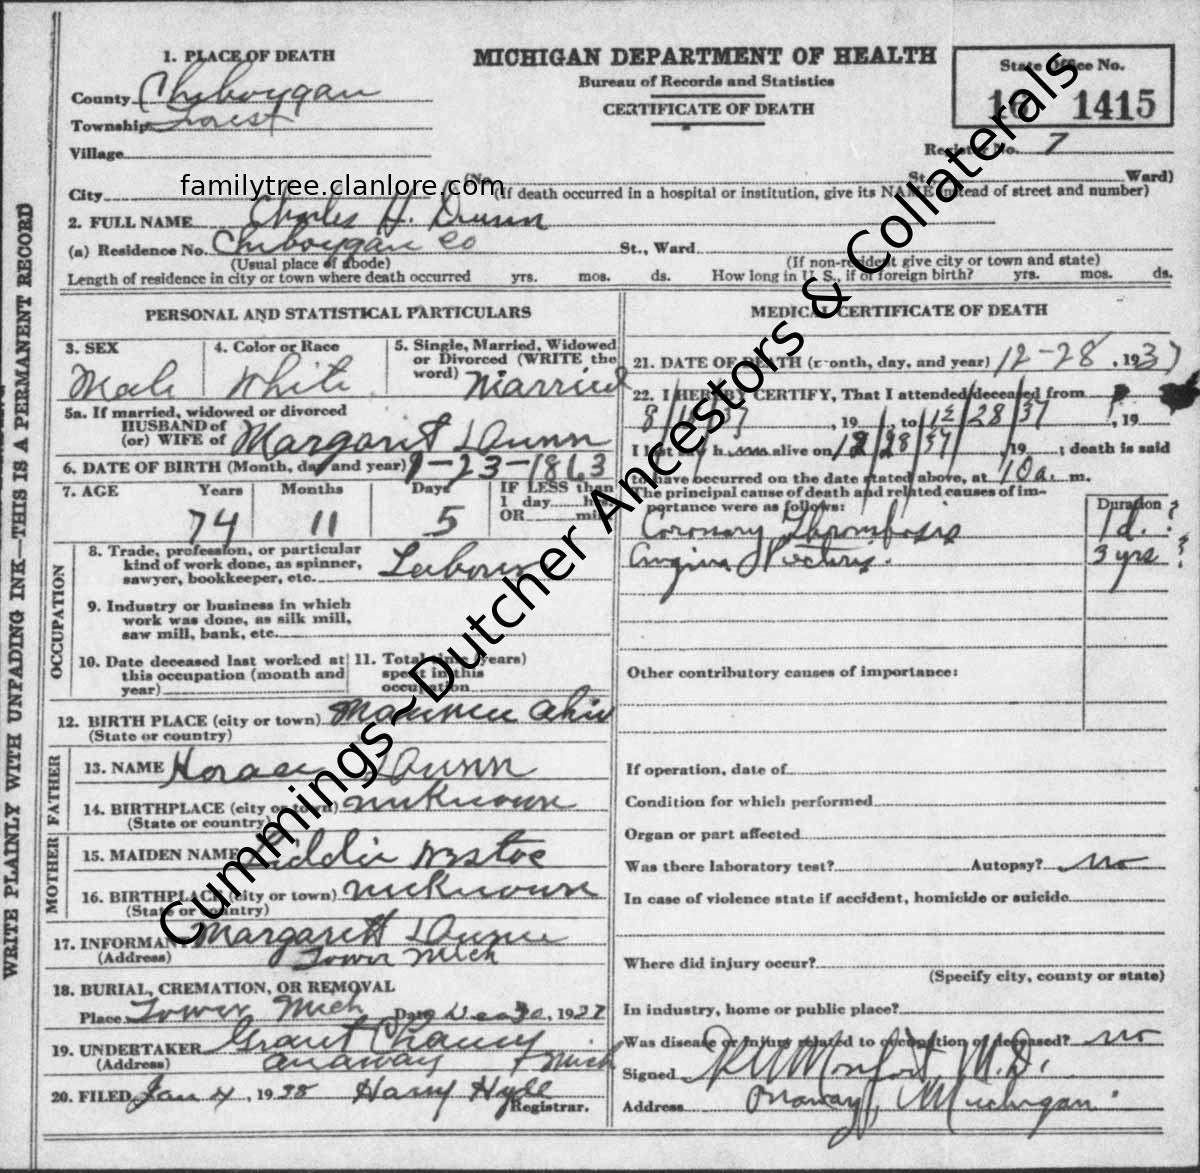 1. PLACE OF DEATH
MICHIGAN DEPARTMENT OF HEALTH
Bureau of Records and Statistics
CERTIFICATE OF DEATH
State Office No.
16 1415
County Cheboygan
Township Forest
Register No. 7
Village
City (No. St., Ward)
(If death occurred in a hospital or institution, give its NAME instead of street and number)
familytree.clanlore.com
2. FULL NAME Charles H. Dunn
(a) Residence No. Cheboygan Co St., Ward
(Usual place of abode) (If non-resident give city or town and state)
Length of residence in city or town where death occurred yrs. mos. ds. How long in U. S., if of foreign birth? yrs. mos. ds.
WRITE PLAINLY WITH UNFADING INK—THIS IS A PERMANENT RECORD
PERSONAL AND STATISTICAL PARTICULARS
3. SEX Male
4. Color or Race White
5. Single, Married, Widowed or Divorced (WRITE the word) Married
5a. If married, widowed or divorced
HUSBAND of
(or) WIFE of Margarit Dunn
6. DATE OF BIRTH (Month, day and year) 1-23-1863
7. AGE Years Months Days IF LESS than
1 day hrs.
OR min.
74 11 5
OCCUPATION
8. Trade, profession, or particular
kind of work done, as spinner,
sawyer, bookkeeper, etc. Laborer
9. Industry or business in which
work was done, as silk mill,
saw mill, bank, etc.
10. Date deceased last worked at
this occupation (month and
year)
11. Total time (years)
spent in this
occupation
12. BIRTH PLACE (city or town) Maumee Ohio
(State or country)
FATHER
13. NAME Horace Dunn
14. BIRTHPLACE (city or town) unknown
(State or country)
MOTHER
15. MAIDEN NAME
16. BIRTHPLACE (city or town) unknown
(State or country)
17. INFORMANT Margarett Dunn
(Address) Tower Mich
18. BURIAL, CREMATION, OR REMOVAL
Place Tower Mich Date Dec 30, 1937
19. UNDERTAKER Grant Chancy
(Address) Onaway Mich
20. FILED Jan 4, 1938 Harry Hyde
Registrar.
MEDICAL CERTIFICATE OF DEATH
21. DATE OF DEATH (month, day, and year) 12-28, 1937
22. I HEREBY CERTIFY, That I attended deceased from
, 19 , to 12/28/37, 19
I last saw him alive on 12/28/37, 19 ; death is said
to have occurred on the date stated above, at 10 a. m.
The principal cause of death and related causes of im-
portance were as follows: Duration
Coronary Thrombosis 1 d. ?
Angina Pectoris. 3 yrs ?
Other contributory causes of importance:
If operation, date of
Condition for which performed
Organ or part affected
Was there laboratory test? Autopsy? no
In case of violence state if accident, homicide or suicide
Where did injury occur?
(Specify city, county or state)
In industry, home or public place?
Was disease or injury related to occupation of deceased? no
Signed Monfort M.D.
Address Onaway, Michigan
Cummings~Dutcher Ancestors & Collaterals